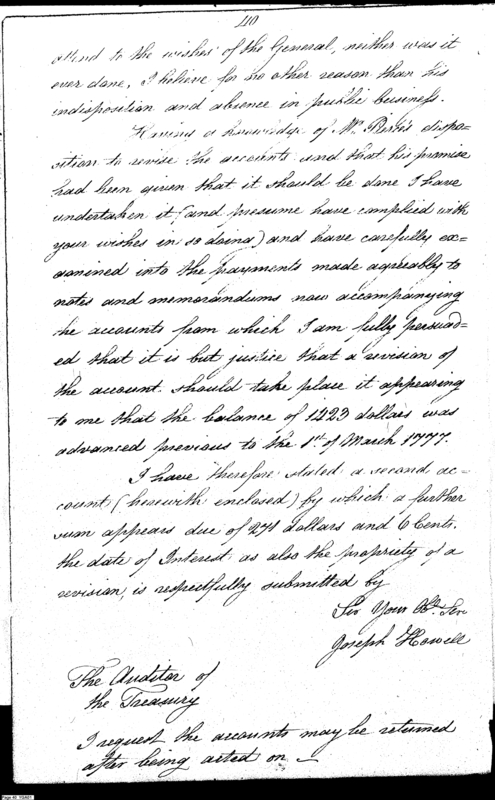 40
attend to the wishes of the General, neither was it
ever done, I believe for no other reason than his
indisposition and absence in public business.
Having a knowledge of Mr. Burke's dispo=
sition to revise the accounts and that his promise
had been given that it should be done I have
undertaken it (and presume have complied with
your wishes in so doing) and have carefully ex=
amined into the payments made agreeably to
notes and memorandums now accompanying
the accounts from which I am fully persuad=
ed that it is but justice that a revision of
the account should take place it appearing
to me that the balance of 1423 dollars was
advanced previous to the 1st of March 1777.
I have therefore stated a second ac=
count (herewith enclosed) by which a further
sum appears due of 271 dollars and 6 Cents.
the date of Interest as also the propriety of a
revision, is respectfully submitted by
Sir Your Obt. Serv
Joseph Howell
The Auditor of
the Treasury
I request the accounts may be returned
after being acted on —